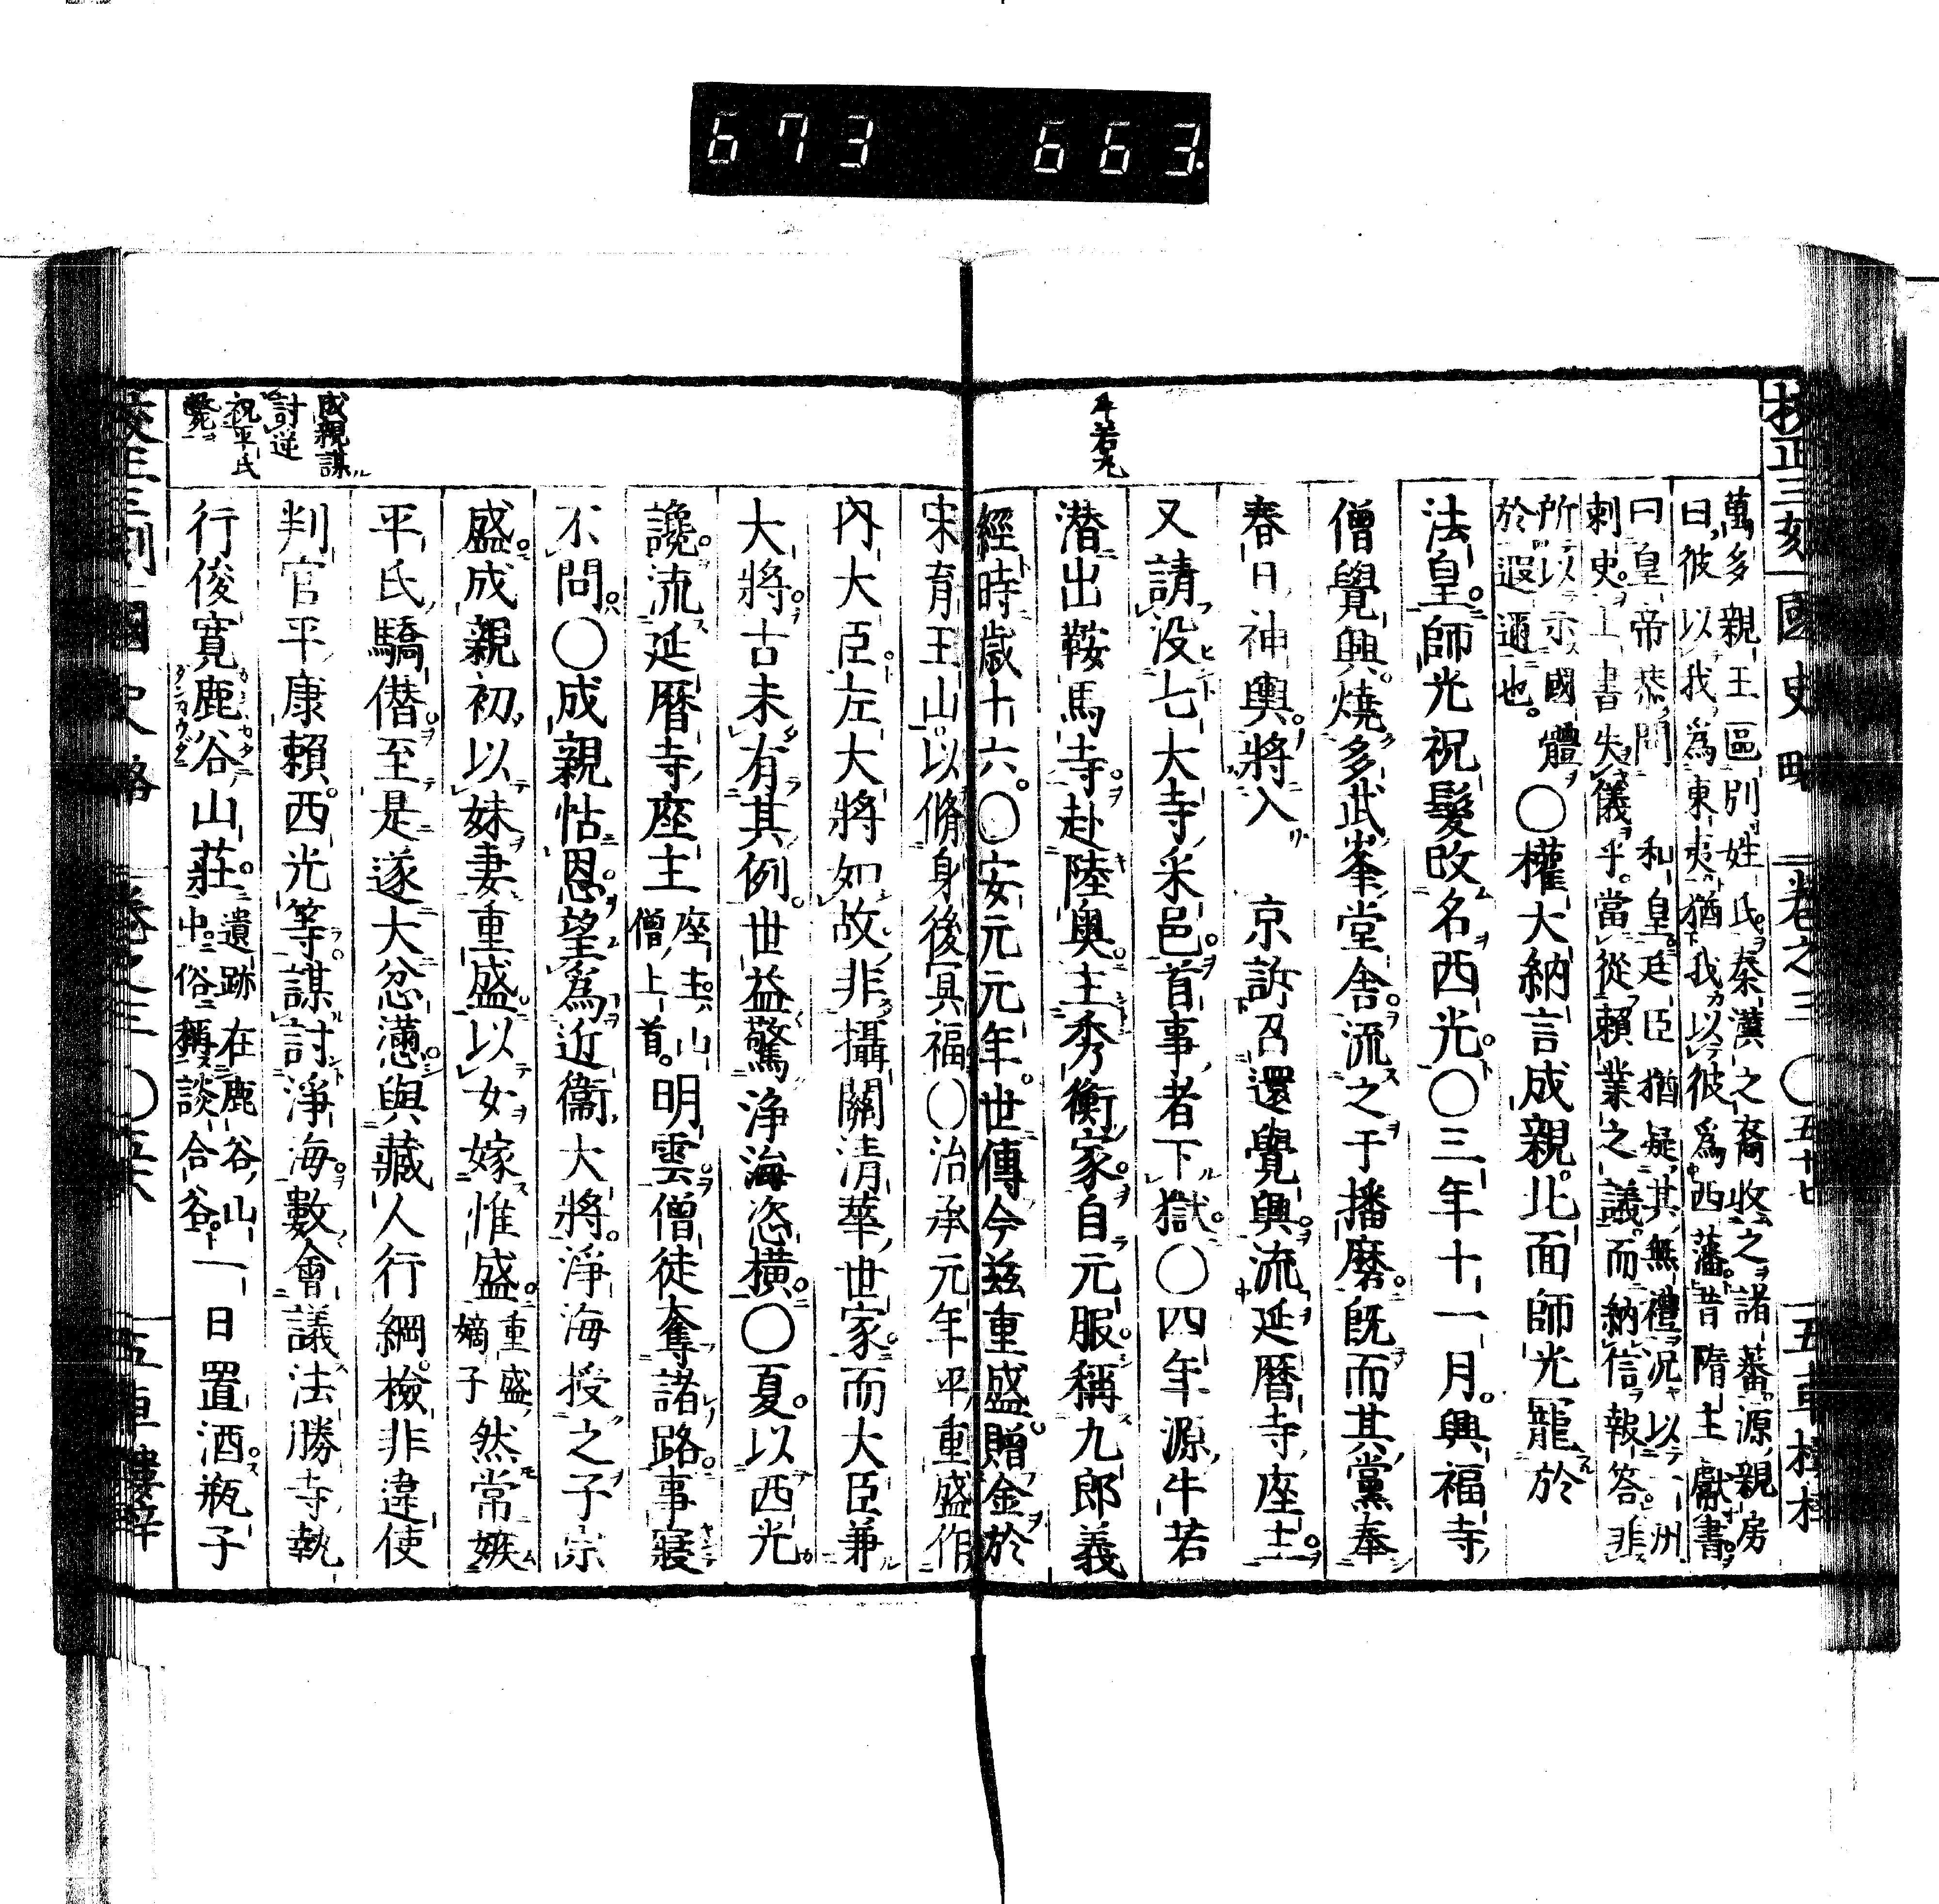 673 663
校正三刻國史略 卷之三 〇五十七 五車樓梓
萬多親王區別姓氏秦漢之裔收之諸蕃源親房
曰彼以我爲東夷猶我以彼爲西藩昔隋主獻書
曰皇帝恭問 和皇廷臣猶疑其無禮況以一洲
刺史上書失儀乎當從賴業之議而納信報答非
所以示國體
於遐邇也
〇權大納言成親北面師光寵於
法皇師光祝髮改名西光〇三年十一月興福寺
僧覺興燒多武峯堂舍流之于播磨既而其黨奉
春日神輿將入 京訴召還覺興流延曆寺座主
又請没七大寺采邑首事者下獄〇四年源牛若
牛若丸
潜出鞍馬寺赴陸奥主秀衡家自元服稱九郎義
經時歲十六〇安元元年世傳今兹重盛贈金於
宋育王山以脩身後冥福〇治承元年平重盛作
內大臣左大將如故非攝關清華世家而大臣兼
大將古未有其例世益驚浄海恣横〇夏以西光
讒流延曆寺座主
座主山
僧上首
明雲僧徒奪諸路事寢
不問〇成親怙恩望爲近衞大將淨海授之子宗
盛成親初以妹妻重盛以女嫁惟盛
重盛
嫡子
然常嫉
平氏驕僭至是遂大忿懣與藏人行綱檢非違使
判官平康賴西光等謀討淨海數會議法勝寺執
成親謀
討逆
祝平氏
斃
行俊寬鹿谷山莊
遺跡在鹿谷山
中俗稱談合谷
一日置酒瓶子
校正三刻國史略 卷之三 〇五十八 五車樓梓